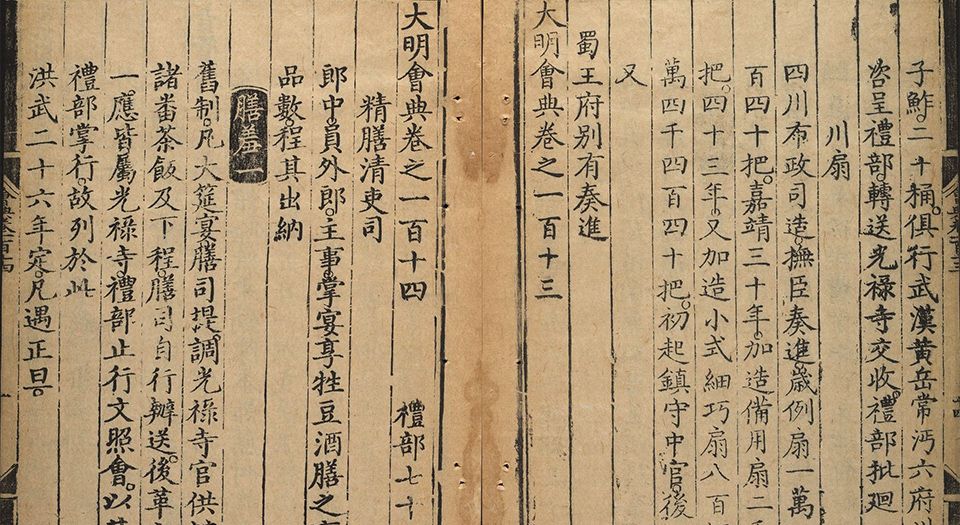 子鮓。二十桶。俱行武漢黃岳常沔六府
咨呈禮部。轉送光祿寺交收。禮部批廻
川扇
四川布政司造。撫臣奏進。歲例扇一萬
百四十把。嘉靖三十年。加造備用扇二
把。四十三年。又加造小式細巧扇八百
萬四千四百四十把。初起鎮守中官。後
又
蜀王府別有奏進
大明會典卷之一百十三
大明會典卷之一百十四 禮部七十
精膳清吏司
郎中。員外郎。主事。掌宴享牲豆酒膳之
品數。程其出納
膳羞一
舊制。凡大筵宴。膳司提調。光祿寺官供
諸番茶飯。及下程。膳司自行辦送。後革
一應皆屬光祿寺。禮部止行文照會。以
禮部掌行。故列於此
洪武二十六年定。凡遇正旦。